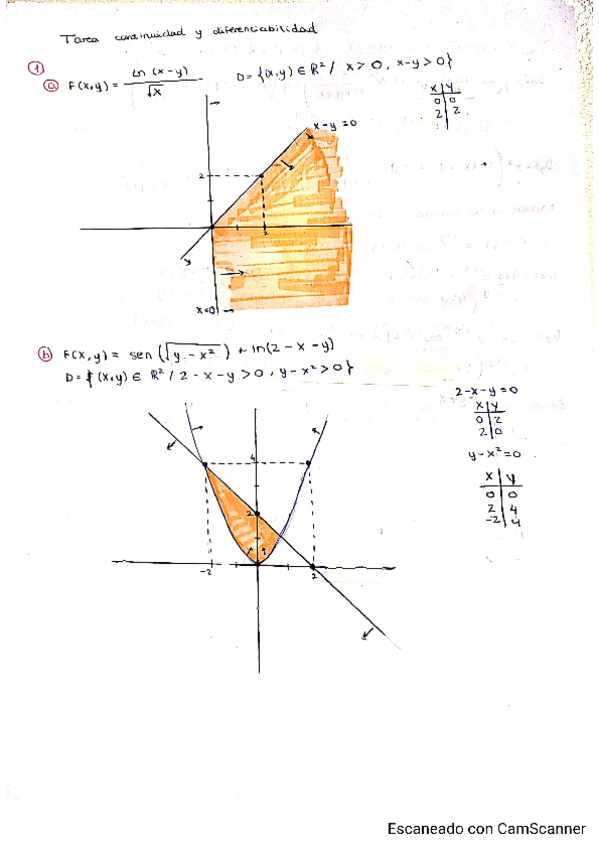 Tarea continuidad y diferenciabilidad
①
ⓐ F(x,y) = ln (x-y) / √x   D = {(x,y) ∈ ℝ² / x > 0, x-y > 0}
x | y
0 | 0
2 | 2
x-y=0
2
x=0
ⓑ F(x,y) = sen (√y-x²) + ln(2-x-y)
D = {(x,y) ∈ ℝ² / 2-x-y > 0, y-x² > 0}
2-x-y=0
x | y
0 | 2
2 | 0
y-x²=0
x | y
0 | 0
2 | 4
-2 | 4
4
2
-2
2
Escaneado con CamScanner